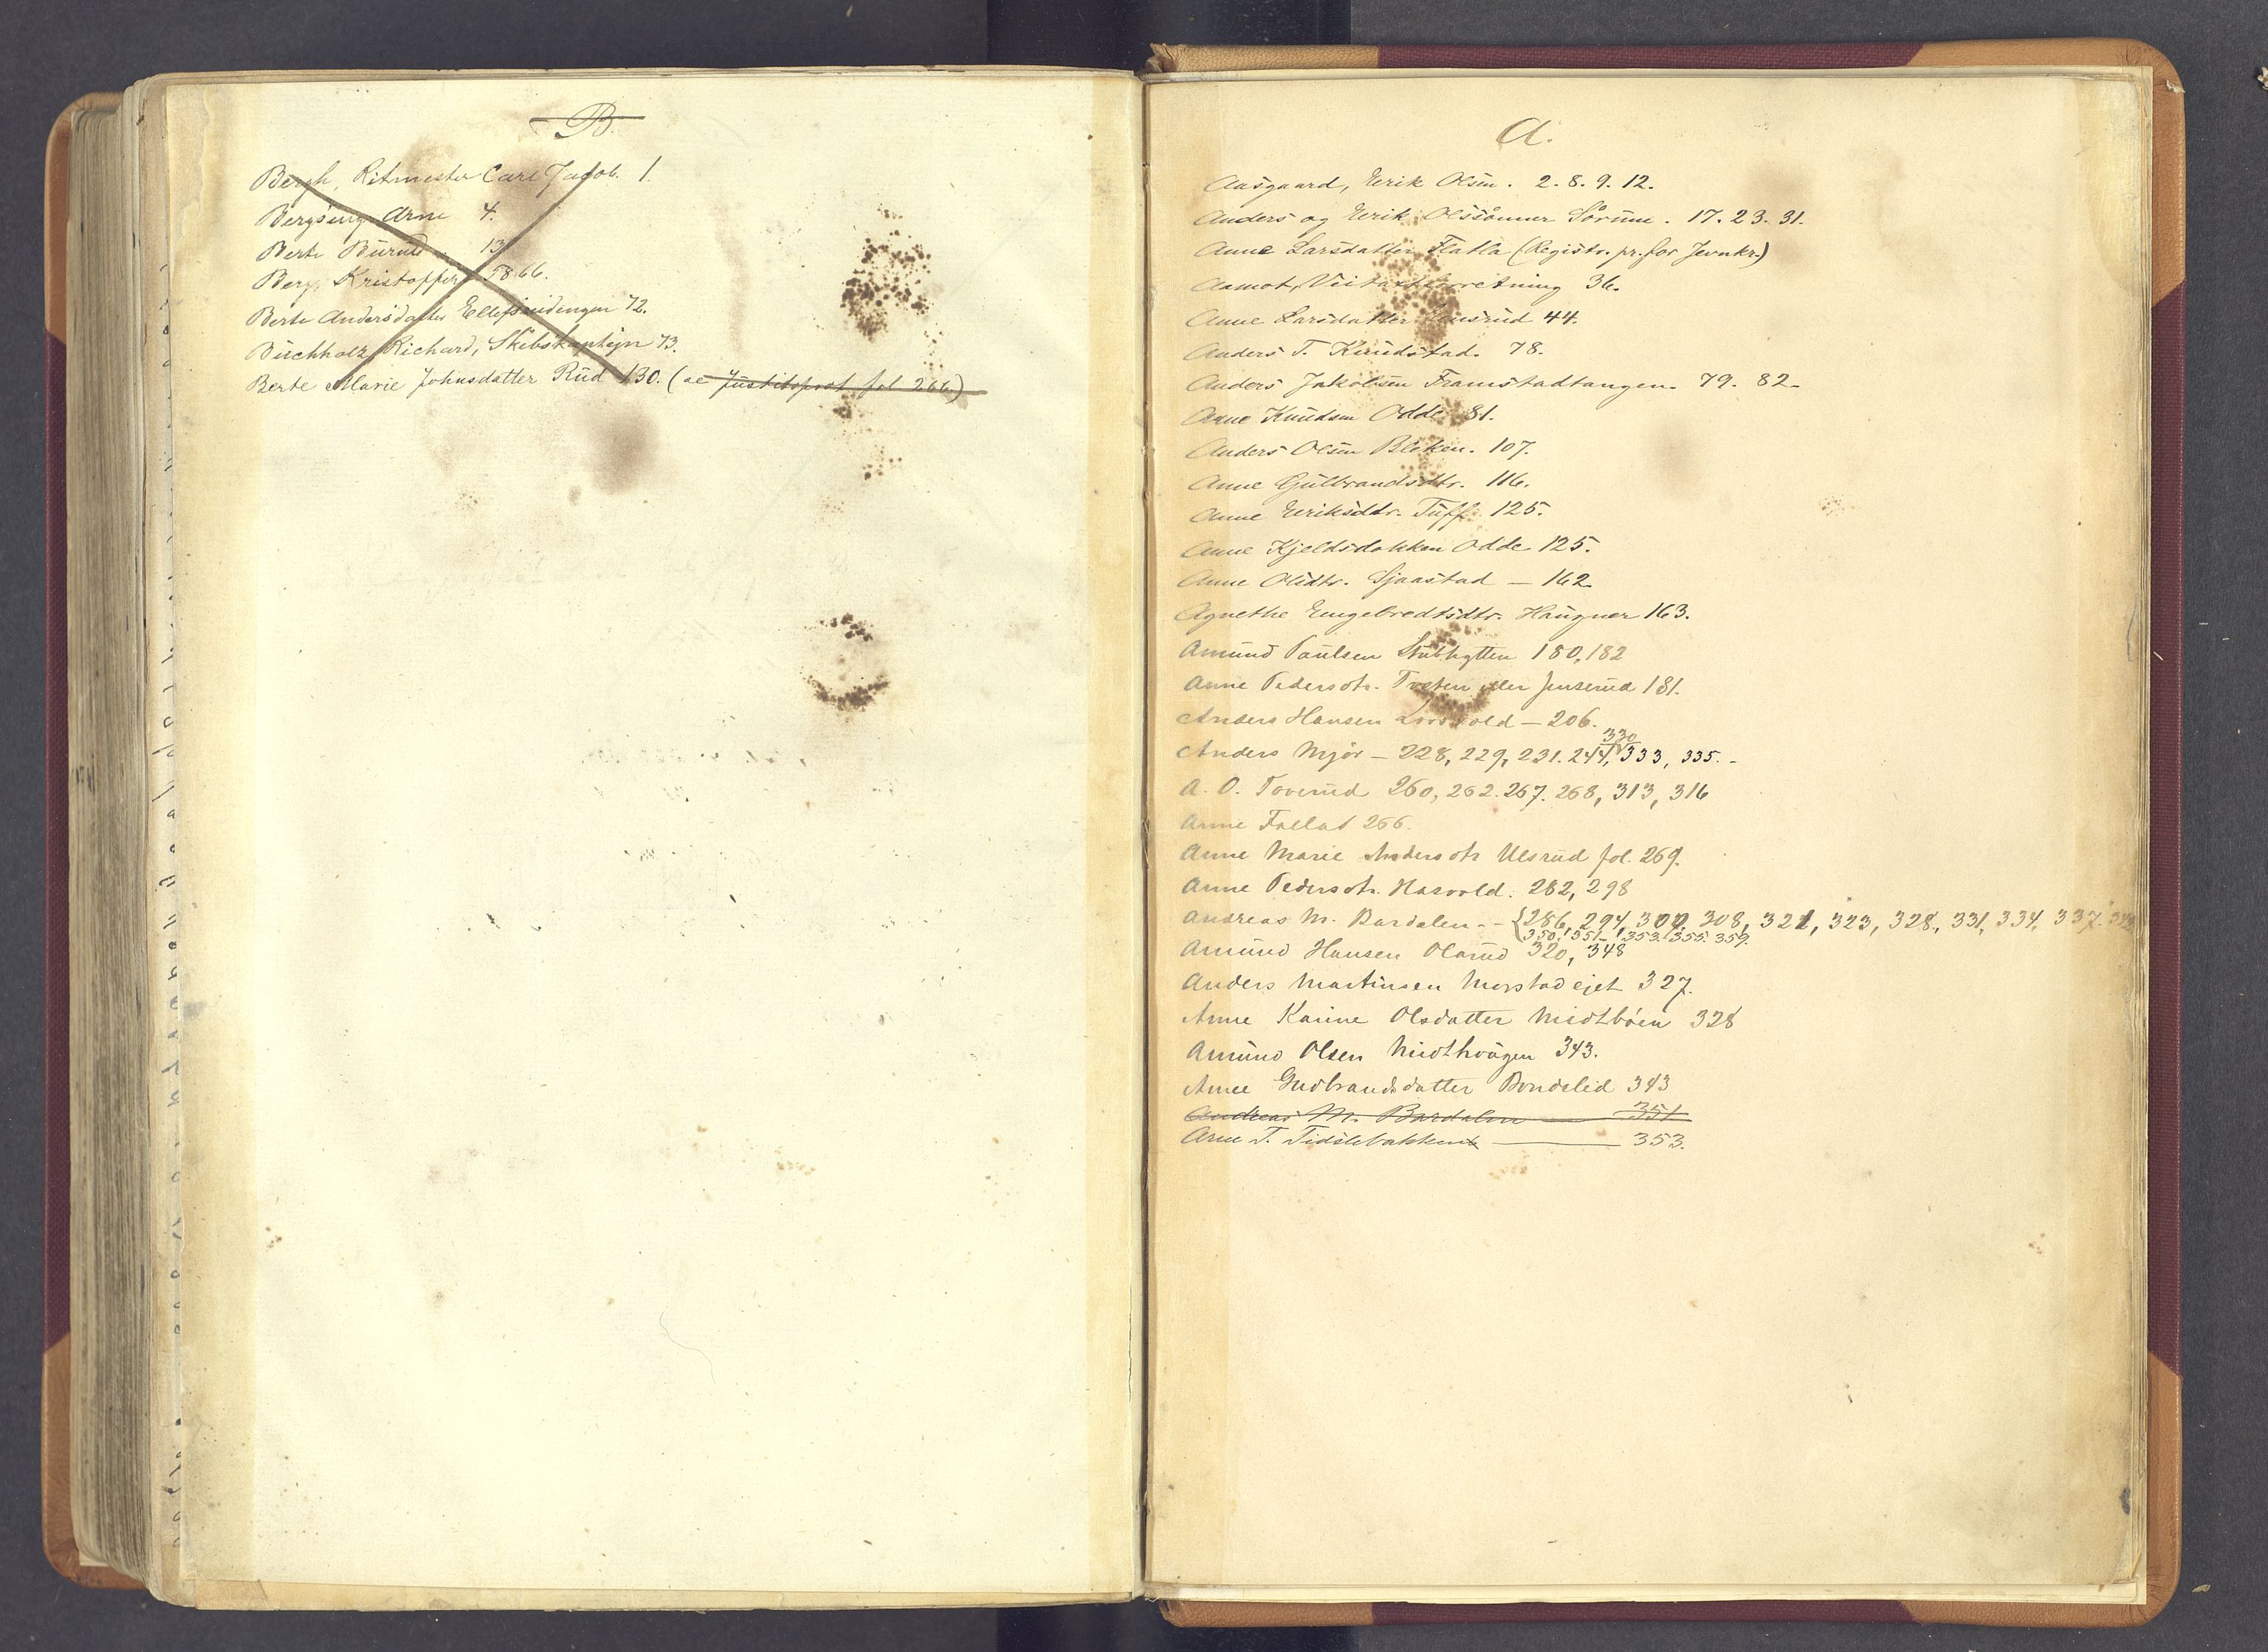 B.
Bergh, Ritmester Carl Jacob. 1.
Bergseng Arne 4.
Berte Burud 13.
Berg, Kristoffer 58 66.
Berte Andersdatter 72.
Buchholz Richard, Skibskaptejn 73.
Berte Marie Johnsdatter Rud 130. (se Justitsprot fol 266)
A.
Aasgaard, Eerik Olsen. 2. 8. 9. 12.
Anders og Eerik Olssönner Sörum. 17. 23. 31.
Anne Larsdatter Flatla (Registr. pr. for Jevnkr.)
Aamot, 36.
Anne Larsdatter 44.
Anders T. Knudstad. 78.
Anders Jakobsen Framstadtangen. 79. 82.
Arne Knudsen Odde 81.
Anders Olsen Bleken. 107.
Anne Gulbrandsdtr. 116.
Anne Eeriksdtr. Tuff. 125.
Anne Kjeldsdokken Odde 125.
Anne Olsdtr. Sjaastad — 162
Agnethe Engebredtsdtr. Haugner 163.
Amund Paulsen Stubhytten 180, 182
Anne Pedersdtr. eller Jenserud 181.
Anders Hansen — 206.
330
Anders Mjör — 228, 229, 231. 244, 333, 335. -
A. O. Toverud 260, 262. 267. 268, 313, 316
Anne 266.
Anne Marie Andersdtr Ulsrud fol. 269.
Anne Pedersdtr. Hasvold. 282, 298
Andreas M. Bardalen - - {286, 294, 300, 308, 321, 323, 328, 331, 334, 337.
350, 351, 353. 355. 359.
Amund Hansen Olarud 320, 348
Anders Martinsen Morstadejet 327.
Anne Karine Olsdatter Midtböen 328
Amund Olsen 343.
Anne Gudbrandsdatter Bondelid 343
Andreas M. Bardalen — 351
Arne T. Tidslebakken — 353.